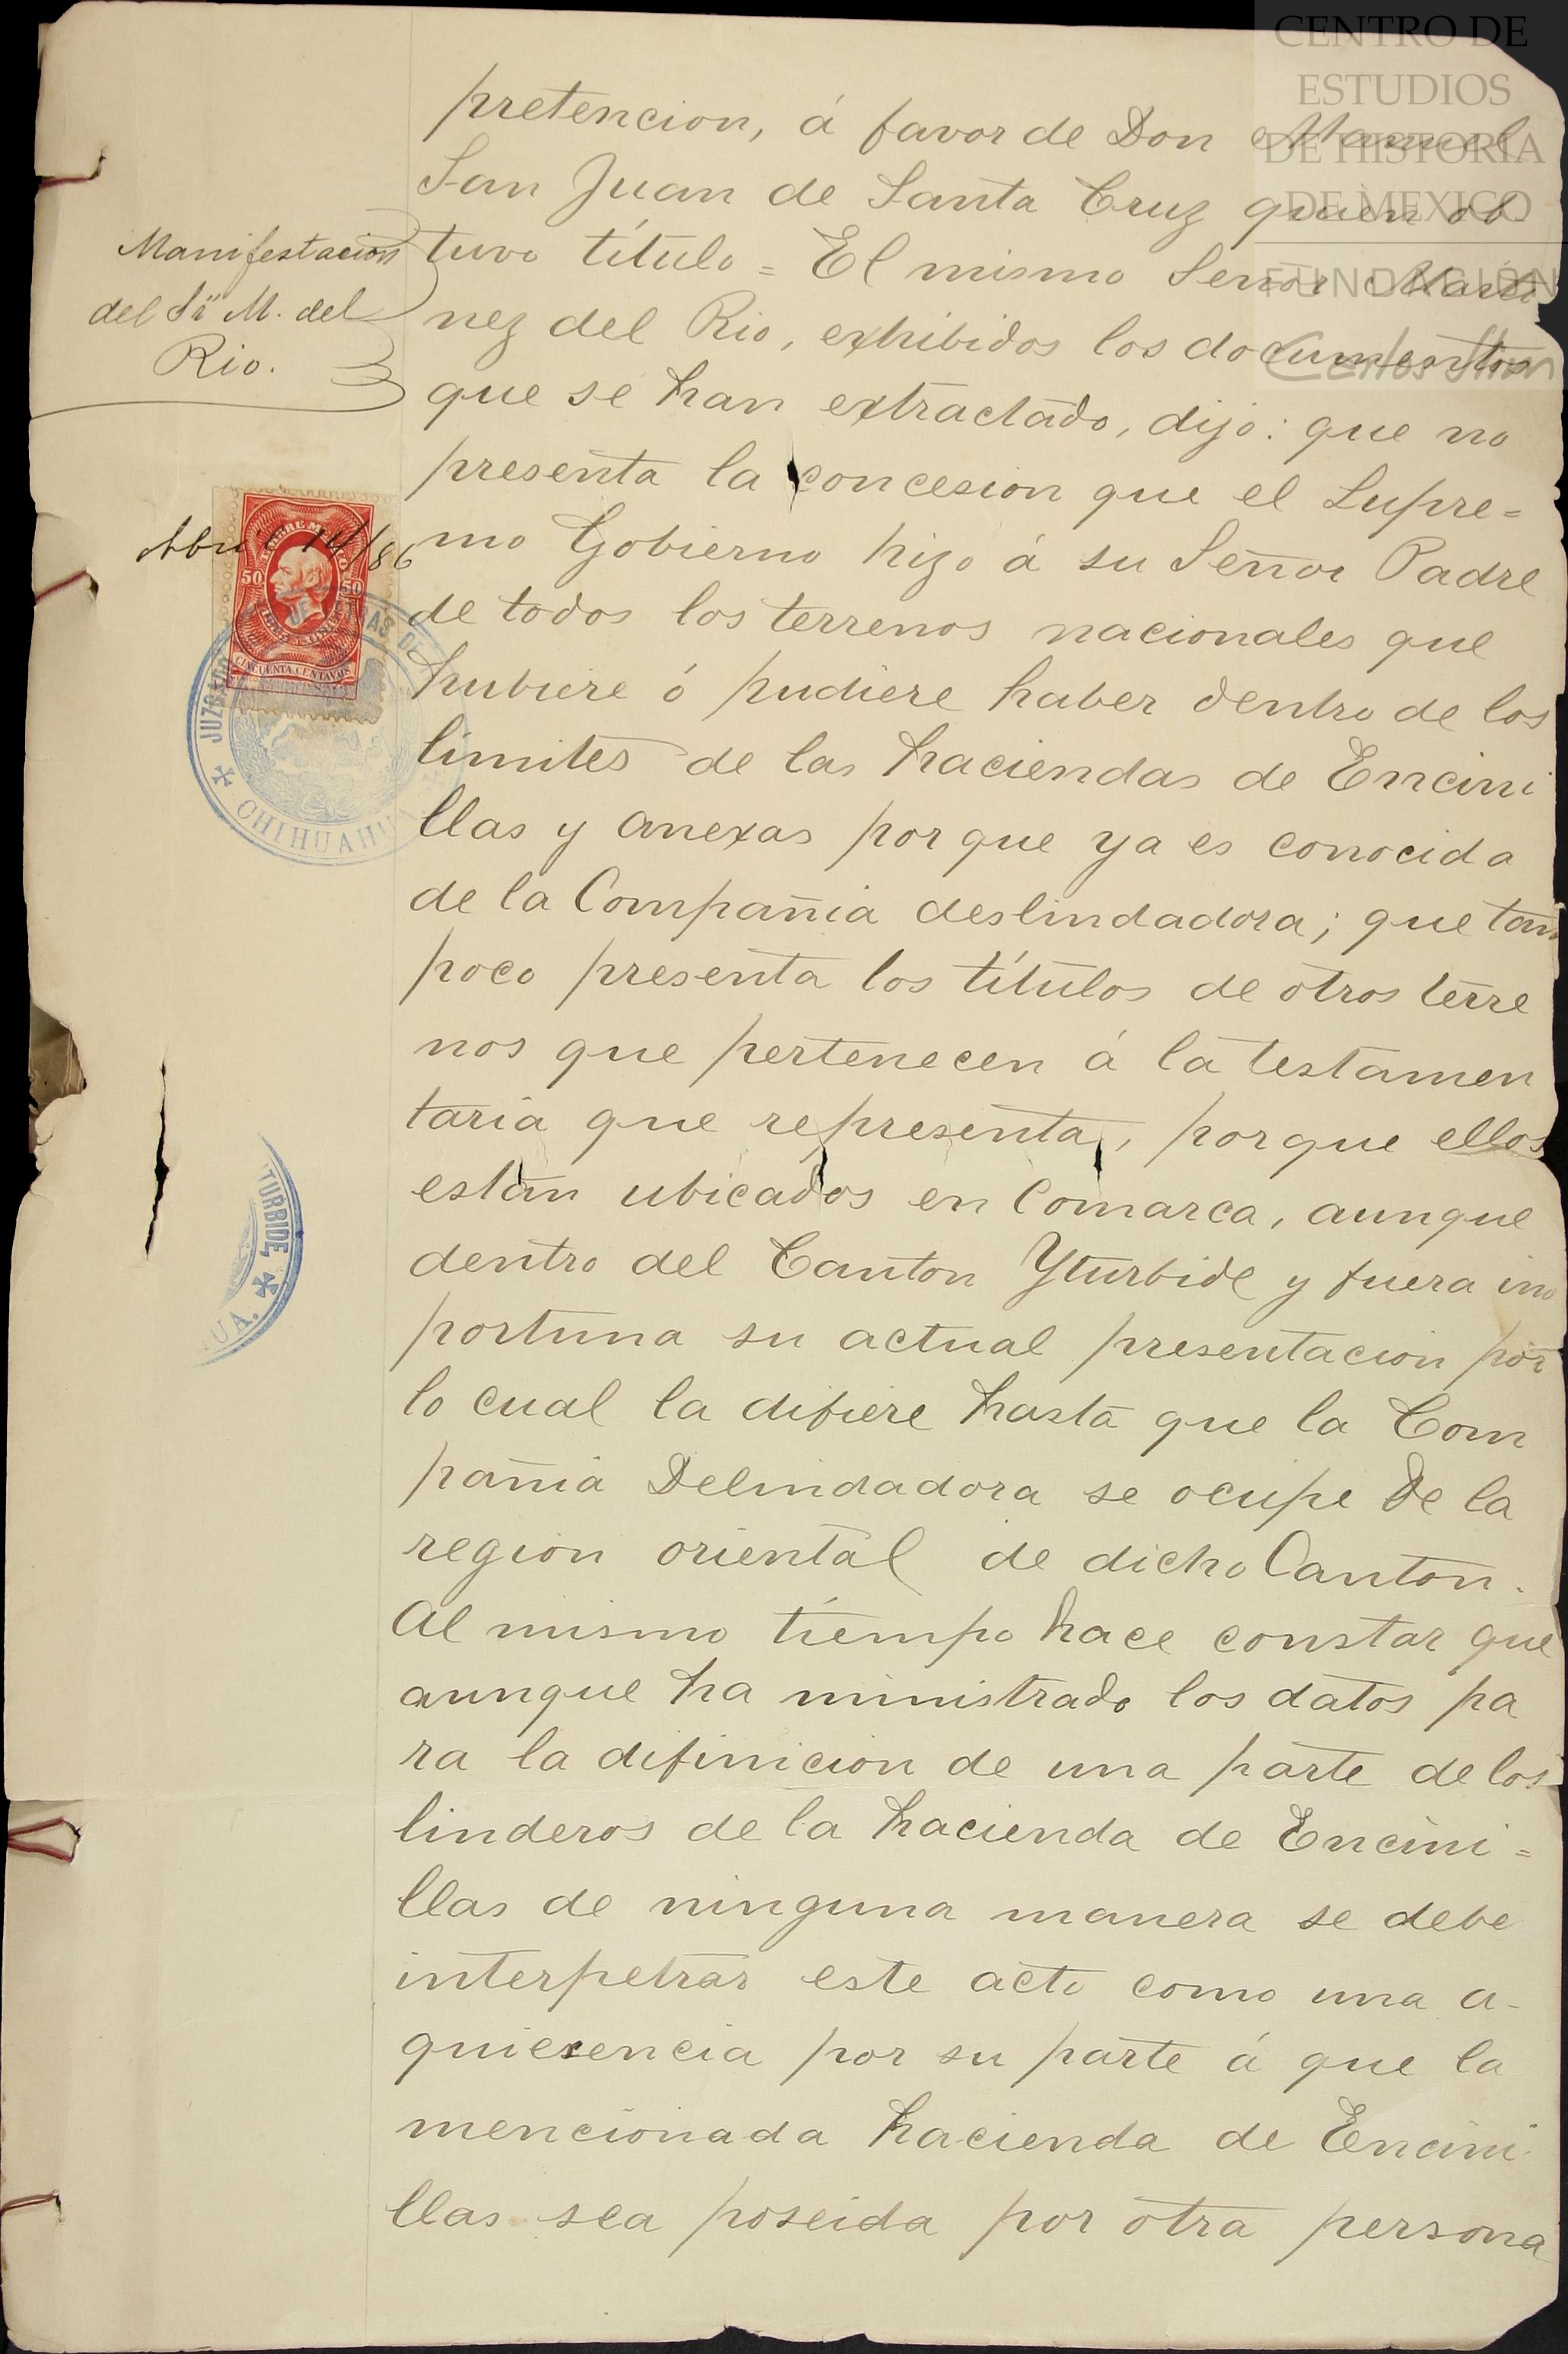 CENTRO DE
ESTUDIOS
DE HISTORIA
DE MEXICO
FUNDACIÓN
Carlos Slim
pretencion, á favor de Don Manuel
San Juan de Santa Cruz quien ob-
tuvo título = El mismo Señor Marti
nez del Rio, exhibidos los documentos
que se han extractado, dijo: que no
presenta la concesion que el Supre=
mo Gobierno hizo á su Señor Padre
de todos los terrenos nacionales que
hubiere ó pudiere haber dentro de los
límites de las haciendas de Encini
llas y anexas por que ya es conocida
de la Compañia deslindadora; que tam
poco presenta los títulos de otros terre
nos que pertenecen á la testamen
taria que representa, porque ellos
están ubicados en Comarca, aunque
dentro del Canton Yturbide y fuera ino
portuna su actual presentacion por
lo cual la difiere hasta que la Com
pañia Delindadora se ocupe de la
region oriental de dicho Canton.
Al mismo tiempo hace constar que
aunque ha ministrado los datos pa
ra la difinicion de una parte de los
linderos de la hacienda de Encini=
llas de ninguna manera se debe
interpetrar este acto como una a-
quiesencia por su parte á que la
mencionada hacienda de Encini-
llas sea poseida por otra persona
Manifestacion
del Sr M. del
Rio.
Abril 14/86
TIMBRE MEXICO
50 50
CINCUENTA CENTAVOS
JUZGADO DE LETRAS DE
CHIHUAHUA
TURBIDE,
UA.